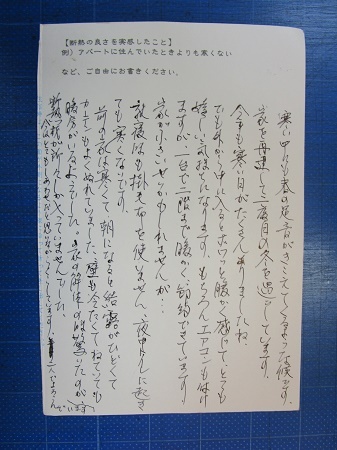 【断熱の良さを実感したこと】
例）アパートに住んでいたときよりも寒くない
など、ご自由にお書きください。
寒い中にも春の足音がきこえてくるような候です。
家を再建して二度目の冬を過ごしています。
今年も寒い日がたくさんありましたね。
でも外から中に入るとホワッと暖かく感じて、とても
嬉しい気持ちになります。もちろんエアコンも付け
ますが、一台で二階まで暖かく、節約できています
家が小さいせいかもしれませんが…
就寝後は掛毛布を使いません、夜中トイレに起き
ても寒くないです。
前の家は寒くて、朝になると結露がひどくて
カーテンもよくぬれていました、壁も冷たくてねていても
暖房がいるようでした、その家の解体の時驚いたのが
断熱材が所々しか入っていませんでした。
今はとてもしあわせだと思いながらくらしています。